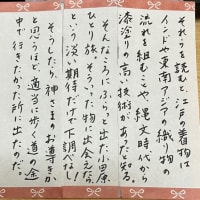 それらを読むと、江戸の着物は
インドや東南アジアの織り物の
流れを組むことや縄文時代から
漆塗りの高い技術があたと知る。
そんなころに、ふらっと出た小田原
ひとり旅。そういった物に出会えたら、
という淡い期待だけで下調べなし!
そうしたら、神さまのお導きか
と思うほど、適当に歩く道の途
中で行きたかった所に出たのだ。